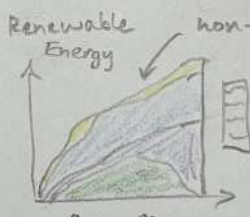 Renewable
Energy
non-